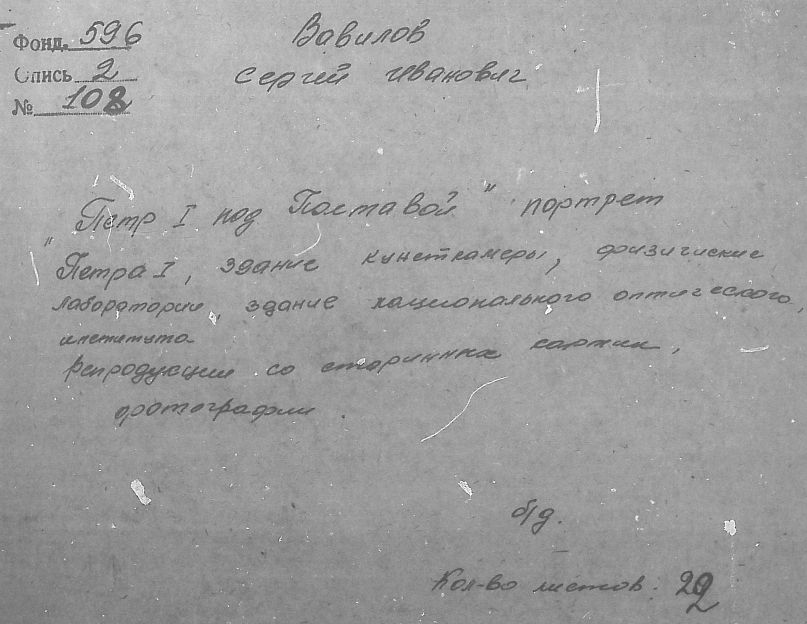 Фонд. 596
Опись 2
№ 108
Вавилов
Сергей Иванович
"Петр I под Полтавой" портрет
Петра I, здание кунсткамеры, физические
лаборатории, здание национального оптического,
института
Репродукции со старинных картин,
фотографии.
б/д.
Кол-во листов: